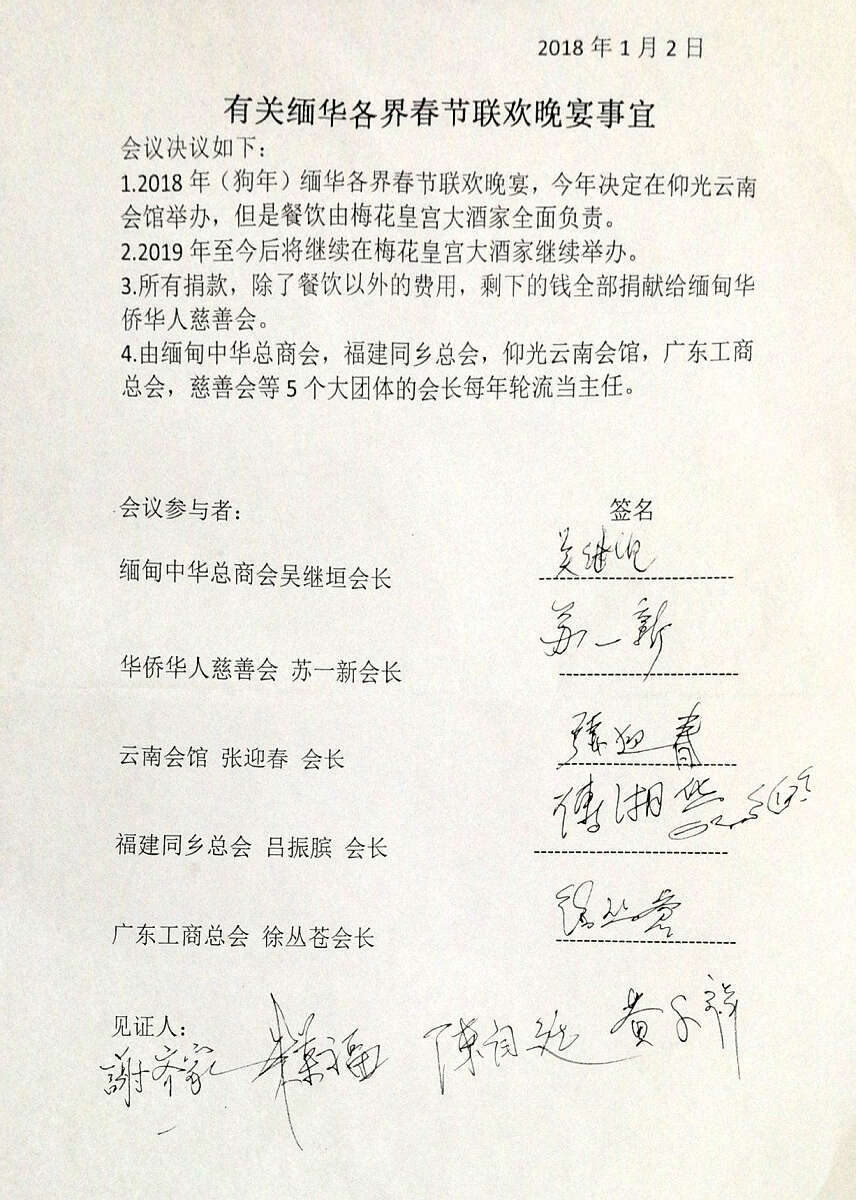 2018 年 1 月 2 日
有关缅华各界春节联欢晚宴事宜
会议决议如下：
1.2018 年（狗年）缅华各界春节联欢晚宴，今年决定在仰光云南
会馆举办，但是餐饮由梅花皇宫大酒家全面负责。
2.2019 年至今后将继续在梅花皇宫大酒家继续举办。
3.所有捐款，除了餐饮以外的费用，剩下的钱全部捐献给缅甸华
侨华人慈善会。
4.由缅甸中华总商会，福建同乡总会，仰光云南会馆，广东工商
总会，慈善会等 5 个大团体的会长每年轮流当主任。
会议参与者： 签名
缅甸中华总商会吴继垣会长 吴继垣
华侨华人慈善会 苏一新会长 苏一新
云南会馆 张迎春 会长 张迎春
福建同乡总会 吕振膑 会长 傅湘
广东工商总会 徐丛苍会长 徐丛苍
见证人：
謝齐家 陈 黄